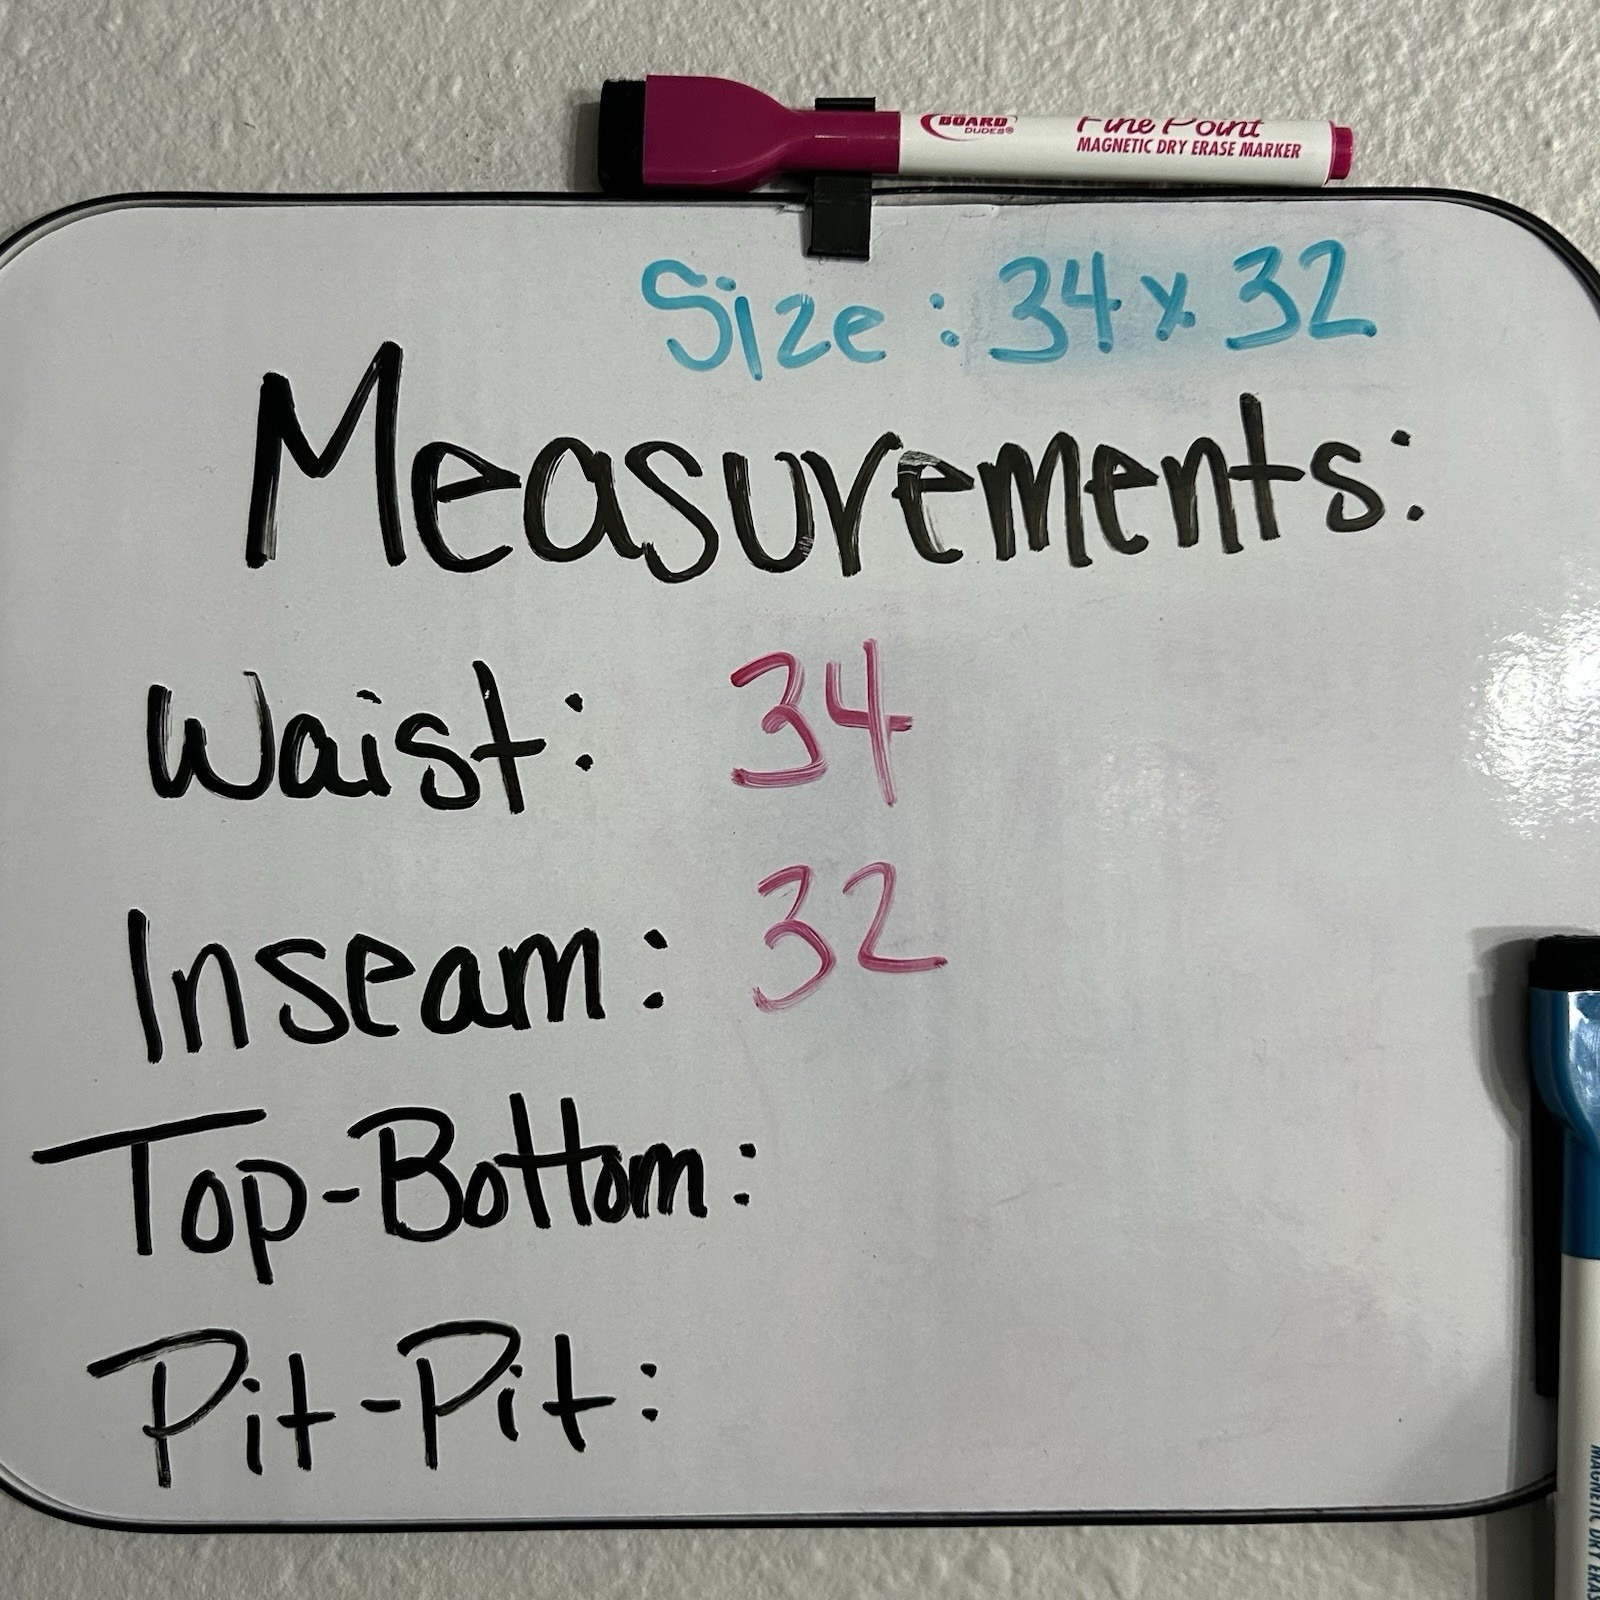 BOARD DUDES®
Fine Point
MAGNETIC DRY ERASE MARKER
Size: 34 x 32
Measurements:
Waist: 34
Inseam: 32
Top-Bottom:
Pit-Pit:
MAGNETIC DRY ERAS